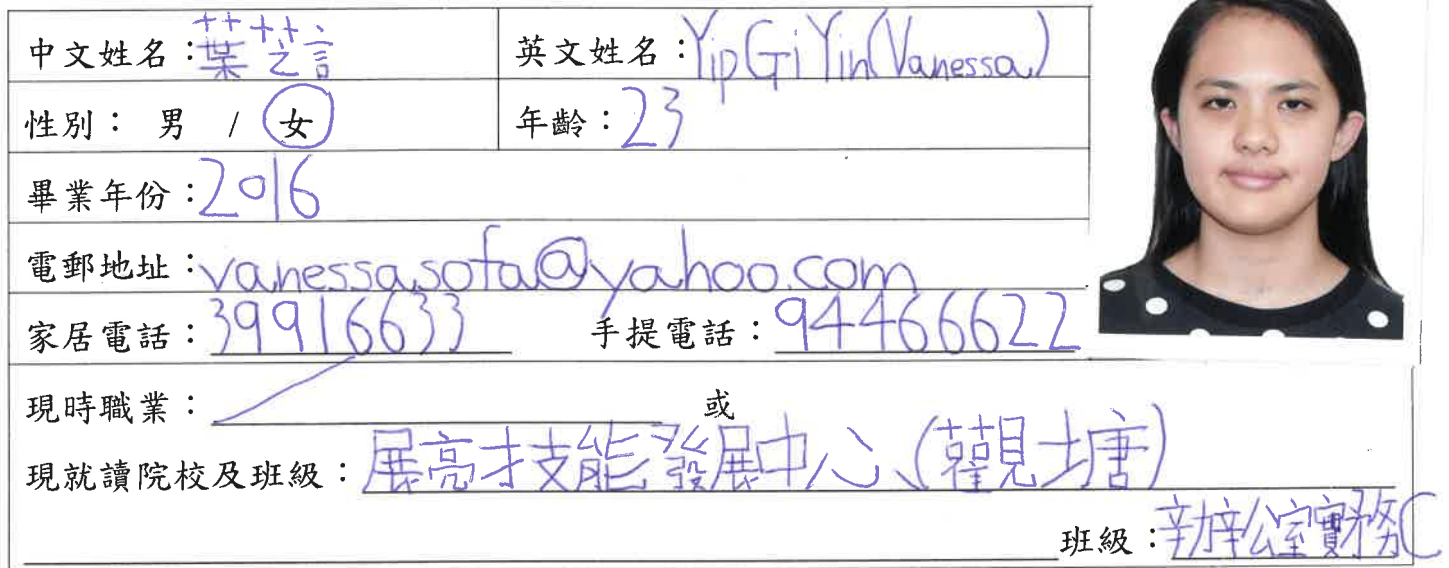 中文姓名：葉芝言 英文姓名：Yip Gi Yin(Vanessa)
性別： 男 / 女 年齡：23
畢業年份：2016
電郵地址：vanessasofa@yahoo.com
家居電話：39916633 手提電話：94466622
現時職業： 或
現就讀院校及班級：展亮技能發展中心(觀塘)
班級：辦公室實務C